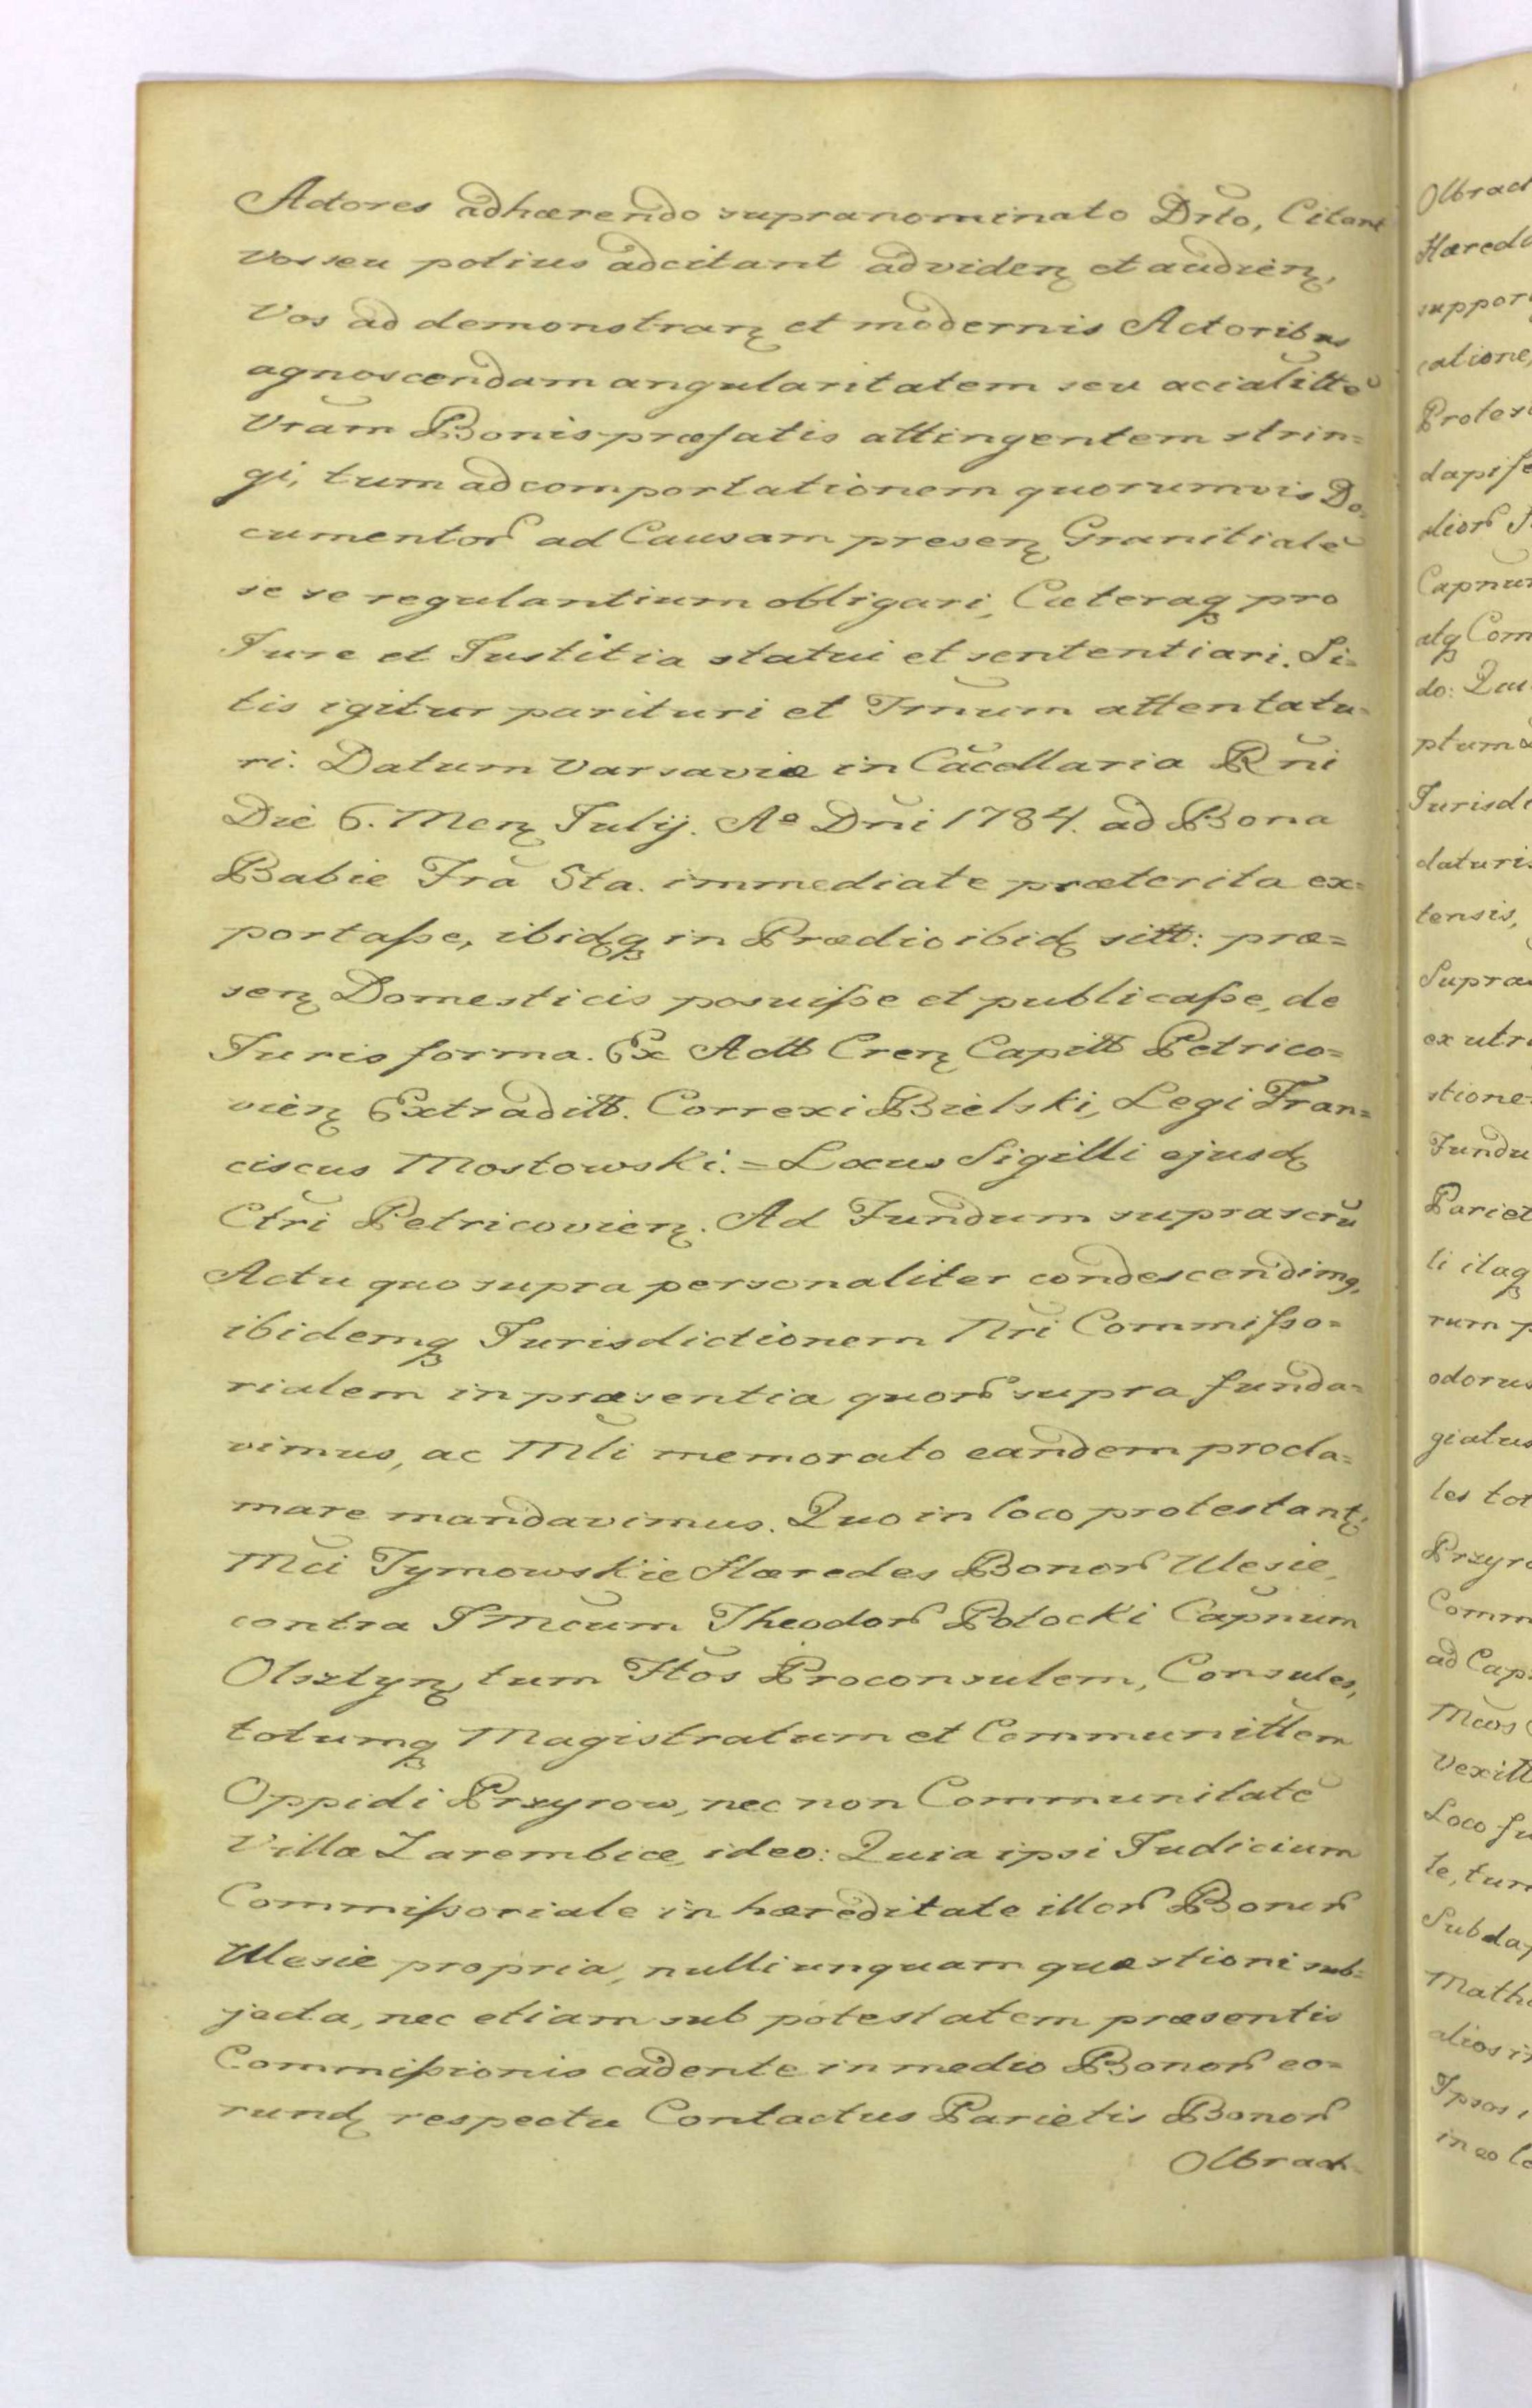 Actores adhærendo supranominato Drto, Citant
Vos seu potius adcitant ad videnꝫ et audienꝫ,
Vos ad demonstranꝫ et modernis Actoribus
agnoscendam angularitatem seu acialitte̅
Vra̅m Bonis præfatis attingentem strin=
gi, tum ad comportationem quorumvis Do=
cumentor̃ ad Causam presenꝫ Granitiale̅
se se regulantium obligari, Cæteraqꝫ pro
Jure et Justitia statui et sententiari. Si=
tis igitur parituri et Trnu̅m attentatu=
ri. Datum Varsaviæ in Ca̅cellaria Rni̅
Die 6. Menꝫ Julij. Aº Dni̅ 1784. ad Bona
Babie Fra̅ 5ta. immediate præterita ex=
portaſse, ibidqꝫ in Prædio ibidꝫ sitt: præ=
senꝫ Domesticis posuiſse et publicaſse, de
Juris forma. Ex Actt Crenꝫ Capitt Petrico=
vienꝫ Extraditt. Correxi Bielski, Legi Fran=
ciscus Mostowski. = Locus Sigilli ejusdꝫ
Ctri̅ Petricovienꝫ. Ad Fundum suprascru̅
Actu quo supra personaliter condescendimq,
ibidemqꝫ Jurisdictionem Nri̅ Commiſso=
rialem in præsentia quor̃ supra funda=
vimus, ac Mli̅ memorato eandem procla=
mare mandavimus. Quo in loco protestantꝫ
Mci̅ Tymowskie Hæredes Bonor̃ Ulesie,
contra JMcu̅m Theodor̃ Potocki Capnu̅m
Olsztynꝫ, tum Hto̅s Proconsulem, Consules,
totumqꝫ Magistratum et Communitte̅m
Oppidi Przyrow, nec non Communitate̅
Villæ Zarembice, ideo: Quia ipsi Judicium
Commiſsoriale in hæreditate illor̃ Bonor̃
Ulesie propria, nulli unquam quæstioni sub=
jecta, nec etiam sub potestatem præsentis
Commiſsionis cadente in medio Bonor̃ eo=
rundꝫ respectu Contactus Parietis Bonor̃
Olbrach=